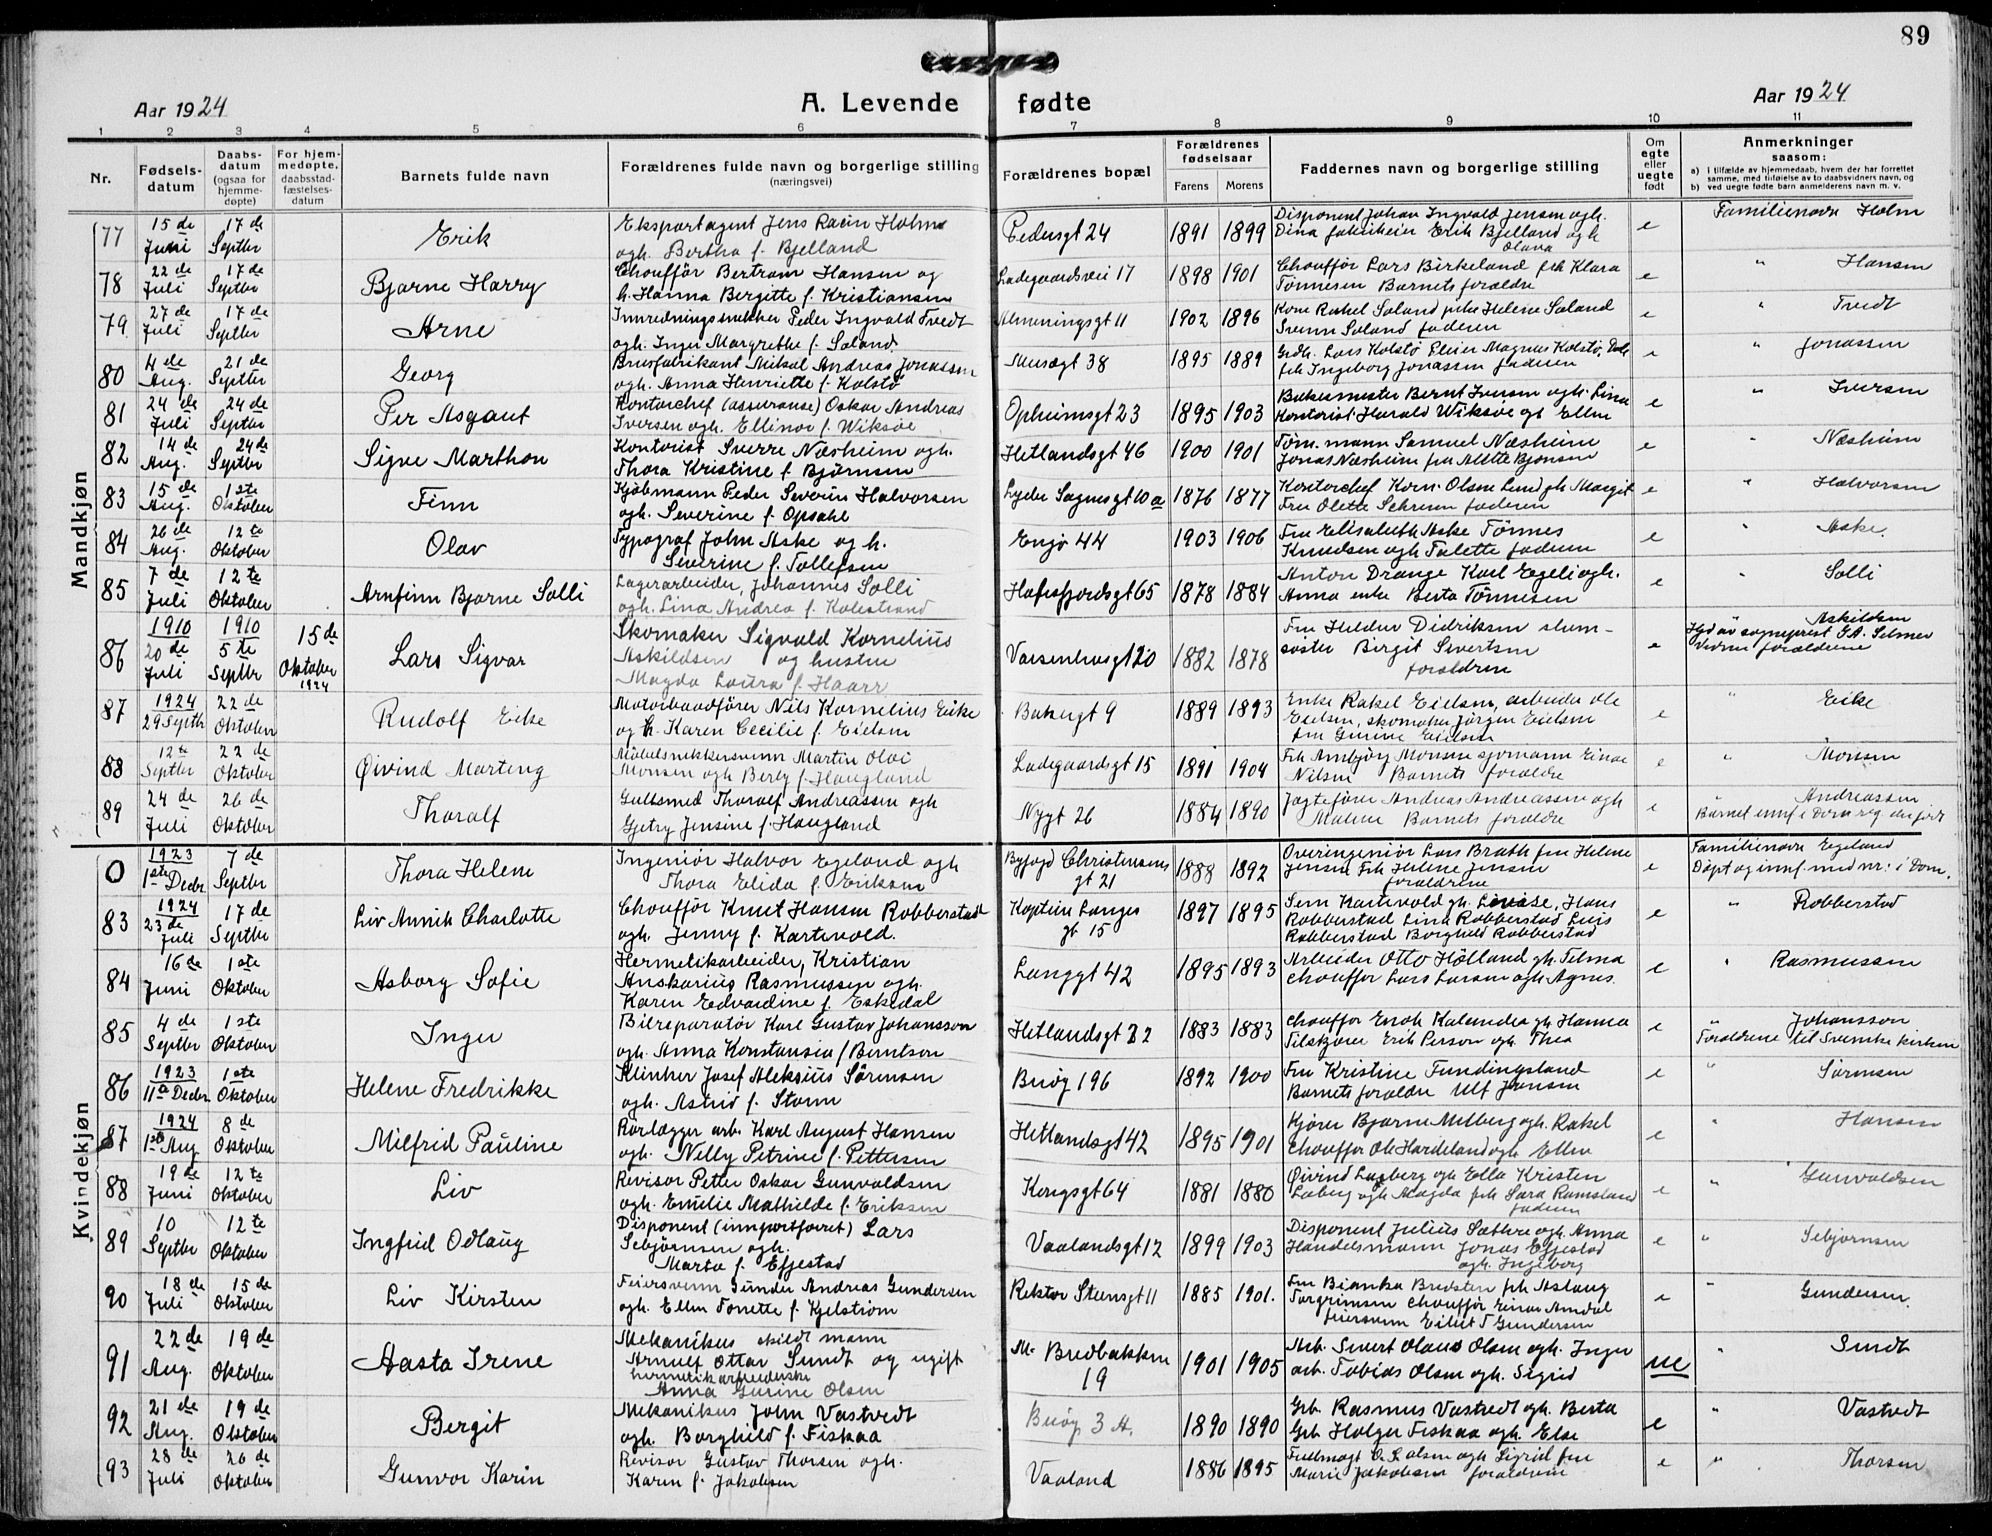 89
Aar 1924 A. Levende fødte Aar 1924
1 2 3 4 5 6 7 8 9 10 11
Nr.
Fødselsdatum
Daabsdatum (ogsaa for hjemmedøpte)
For hjemmedøpte, daabsstadfæstelsesdatum
Barnets fulde navn
Forældrenes fulde navn og borgerlige stilling
(næringsvei)
Forældrenes bopæl
Forældrenes fødselsaar
Farens Morens
Faddernes navn og borgerlige stilling
Om egte eller uegte født
Anmerkninger
saasom:
a) I tilfælde av hjemmedaab, hvem der har forrettet samme, med tilføielse av to daabsvidners navn, og
b) ved uegte fødte barn anmelderens navn m. v.
Mandkjøn
77 15de Juni 17de Septbr Erik
Eksportagent Jens Racin Holm
ogh. Bertha f. Bjelland
Pedersgt 24 1891 1899
Disponent Johan Ingvald Jensen ogh.
Dina fabrikeier Erik Bjelland ogh
Olava
e Familienavn Holm
78 22de Juli 17de Septbr Bjarne Harry
Chouffør Bertram Hansen og
h. Hanna Bergitte f. Kristiansen
Ladegaardsvei 17 1898 1901
Chouffør Lars Birkeland frk Klara
Tønnesen Barnets forældre
e " Hansen
79 27de Juli 17de Septbr Arne
Innredningssnekker Peder Ingvald Tvedt
ogh. Inger Margrethe f. Soland
Almeningsgt 11 1902 1896
Kone Rakel Soland pike Helene Soland
Svenn Soland faderen
e " Tvedt
80 4de Aug. 21de Septbr Georg
Brusfabrikant Mikal Andreas Jonassen
ogh. Anna Henriette f. Kolstø
Musægt 38 1895 1889
Grdb. Lars Kolstø Elier Magnus Kolstø,
frk Ingeborg Jonassen faderen
e " Jonassen
81 24de Juli 24de Septbr Per Asgaut
Kontorchef (assuranse) Oskar Andreas
Iversen ogh. Ellinor f. Wiksøe
Opheimsgt 23 1895 1903
Bakermester Bernt Iversen ogh. Lina
Kontorist Harald Wiksøe og Ellen
e " Iversen
82 14de Aug. 24de Septbr Signe Marthon
Kontorist Sverre Næsheim ogh.
Thora Kristine f. Bjørnsen
Hetlandsgt 46 1900 1901
Tøm. mann Samuel Næsheim
Jonas Næsheim fru Mette Bjonsen
e " Næsheim
83 15de Aug. 1ste Oktober Finn
Kjøbmann Peder Severin Halvorsen
ogh. Severine f. Opsahl
Lyder Sagensgt 10a 1876 1877
Kontorchef Korn. Olsen Lund gh Margit
Fru Olette faderen
e " Halvorsen
84 26de Aug. 12te Oktober Olav
Typograf John Aske og h.
Severine f. Tollefsen
Engø 44 1903 1906
Fru Elisabeth Aske Tønnes
Knudsen ogh Talette faderen
e " Aske.
85 7de Juli 12te Oktober Arnfinn Bjarne Solli
Lagerarbeider, Johannes Solli
ogh. Lina Andrea f. Kolestrand
Hafrsfjordsgt 65 1878 1884
Anton Drange Karl Egeli ogh.
Anna enke Berta Tønnesen
e " Solli
86 1910 20de Juli 1910 5te Septbr 15de Oktober 1924 Lars Sigvar
Skomaker Sigvald Kornelius
Askildsen og hustru
Magda Laura f. Haarr
Vaisenhusgt 20 1882 1878
Fru Helder Didriksen slum-
søster Birgit Sivertsen
forældrene
e " Askildsen
Hjd av sogneprest G.A. Selmer
Vidner forældrene
87 1924 29 Septbr 22de Oktober Rudolf Eike
Motorbaadfører Nils Kornelius Eike
og h. Karen Cecilie f. Eielsen
Bakergt 9 1889 1893
Enke Rakel Eielsen, arbeider Ole
Eielsen, skomaker Jørgen Eielsen
fru Gurine Eielsen
e " Eike
88 12te Septbr 22de Oktober Øivind Marteng
Møbelsnekkersvenn Martin Olai
Monsen ogh Berly f. Haugland
Ladegaardsgt 15 1891 1904
Frk Ambjør Monsen sjømann Einar
Nilsen Barnets forældre
e " Monsen
89 24de Juli 26de Oktober Thoralf
Gulsmed Thoralf Andreassen ogh
Gjetry Jensine f. Haugland
Nygt 26 1884 1890
Jagtefører Andreas Andreassen ogh
Malene Barnets forældre
e " Andreassen
Barnet innf i Dom.reg. der født
Kvindekjøn
0 1923 1ste Decbr 7de Septbr Thora Helene
Ingeniør Halvor Egeland ogh
Thora Elida f. Eriksen
Byfogd Christensens gt 21 1888 1892
Overingeniør Lars Brath fru Helene
Jensen frk Helene Jensen
forældrene
e Familienavn Egeland
Døpt og innf. med nr. i Dom.
83 1924 23de Juli 17de Septbr Liv Annik Charlotte
Chouffør Knut Hansen Robberstad
ogh. Jenny f. Kartevold.
Kaptein Langes gt 15 1897 1895
Sem Kartevold gh. Lovise, Hans
Robberstad Lina Robberstad Luis
Robberstad Borghild Robberstad
e " Robberstad
84 16de Juni 1ste Oktober Asborg Sofie
Hermetikarbeider, Kristian
Anskarius Rasmussen ogh.
Karen Edvardine f. Eskedal
Langgt 42 1895 1893
Arbeider Otto Hølland gh. Telma
Chouffør Lars Larsen ogh Agnes.
e " Rasmussen
85 4de Septbr 1ste Oktober Inger
Bilreparatør Karl Gustav Johansson
ogh. Anna Konstansia f. Berntsen
Hetlandsgt 22 1883 1883
Chouffør Enok Kalander gh. Hanna
Tilskjærer Erik Person ogh. Thea
e " Johansson
Forældrene til Svenske kirken
86 1923 11te Decbr 1ste Oktober Helene Fredrikke
Klinker Josef Aleksius Sørensen
ogh. Astrid f. Storm
Buøy 196 1892 1900
Fru Kristine Tundingsland
Barnets forældre Ulf Jensen
e " Sørensen
87 1924 1ste Aug 8de Oktober Milfrid Pauline
Rørlægger arb. Karl August Hansen
ogh. Nelly Petrine f. Pettersen
Hetlandsgt 42 1895 1901
Kjører Bjarne Melberg ogh. Rakel
Chouffør Ole Hardeland ogh Ellen
e " Hansen
88 19de Juni 12te Oktober Liv
Revisor Petter Oskar Gunvaldsen
ogh. Emilie Mathilde f. Eriksen
Kongsgt 64 1881 1880
Øivind Laberg ogh Ella Kristen
Laberg ogh Magda frk Sara Ramsland
faderen
e " Gunvaldsen
89 10 Septbr 12te Oktober Ingfrid Odlaug
Disponent (innportforret) Lars
Sebjørnsen ogh.
Marta f. Efjestad
Vaalandsgt 12 1899 1903
Disponent Julius Sæthre ogh. Anna
Handelsmann Jonas Efjestad
ogh. Ingeborg
e " Sebjørnsen
90 18de Juli 15de Oktober Liv Kirsten
Feiersvenn Gunder Andreas Gundersen
ogh. Ellen Tonette f. Kjelstrøm
Rektor Steensgt 11 1885 1901.
Fru Bianka Bredsten frk Aslaug
Torgrimsen Chouffør Einar Amdal
feiersvenn Eilert T Gundersen
e " Gundersen.
91 22de Aug. 19de Oktober Aasta Irene
Mekanikus skildt mann
Arnulf Ottar Sundt og ugift
hermetikarbeiderske
Anna Gurine Olsen
M. Bredbakken 19 1901 1905
Arb. Sivert Olaus Olsen ogh. Inger
arb. Tobias Olsen ogh. Sigrid
ue " Sundt
92 21de Aug. 19de Oktober Bergit
Mekanikus John Vastvedt
ogh. Borghild f. Fiskaa
Buøy 3 A. 1890 1890
Grb. Rasmus Vastvedt ogh. Berta
Grb Holger Fiskaa ogh. Else
e " Vastvedt
93 28de Juli 26de Oktober Gunvor Karin
Revisor Gustav Thorsen ogh.
Karen f. Jakobsen
Vaaland 1886 1895
Fuldmægt O. L. Olsen ogh Sigrid fru
Marie Jakobsen forældrene
e " Thorsen